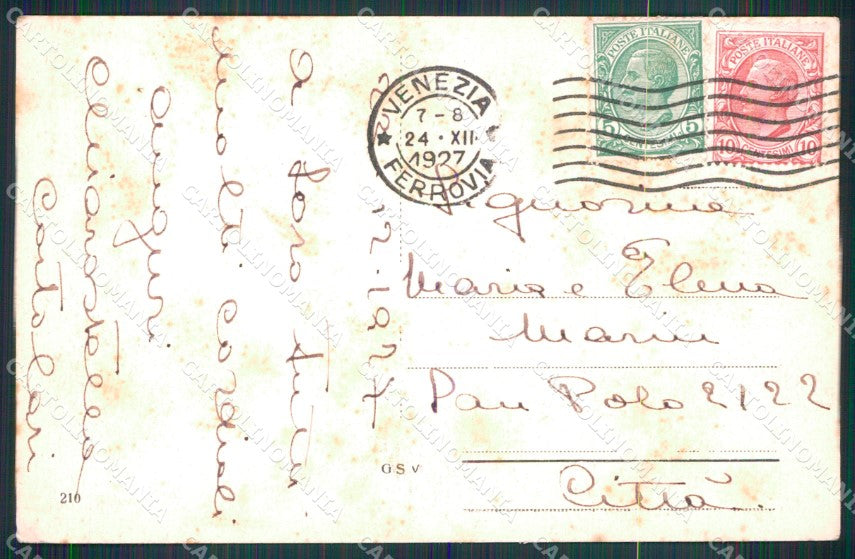 POSTE ITALIANE
5
5
POSTE ITALIANE
10 CENTESIMI 10
VENEZIA
7-8
24·XII
1927
FERROVIA
Signorine
Maria e Elena
Marin
San Polo 2122
Città
A loro tutti
molti cordiali
auguri
Chiarastella
Cortolari
2-1927
GSV
210
CARTOLINOMANIA